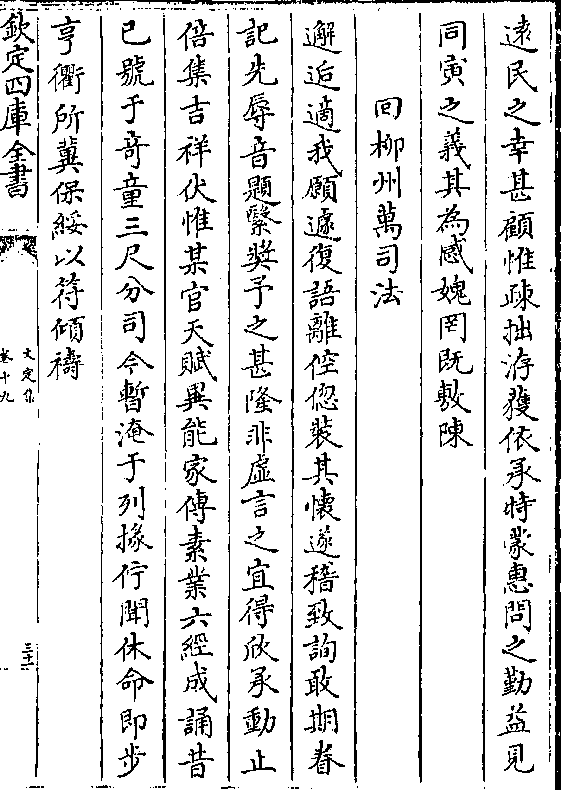 逺民之幸甚顧惟疎拙洊獲依承特蒙惠問之勤益見
同寅之義其為感媿罔既敷陳
回柳州萬司法
邂逅適我願遽復語離倥偬裝其懷遂稽致詢敢期眷
記先辱音題繄奬予之甚隆非虛言之宜得欣承動止
倍集吉祥伏惟某官天賦異能家傳素業六經成誦昔
已號于竒童三尺分司今暫淹于列掾佇聞休命即步
亨衢所冀保綏以符傾禱
欽定四庫全書
文定集
卷十九
三十二